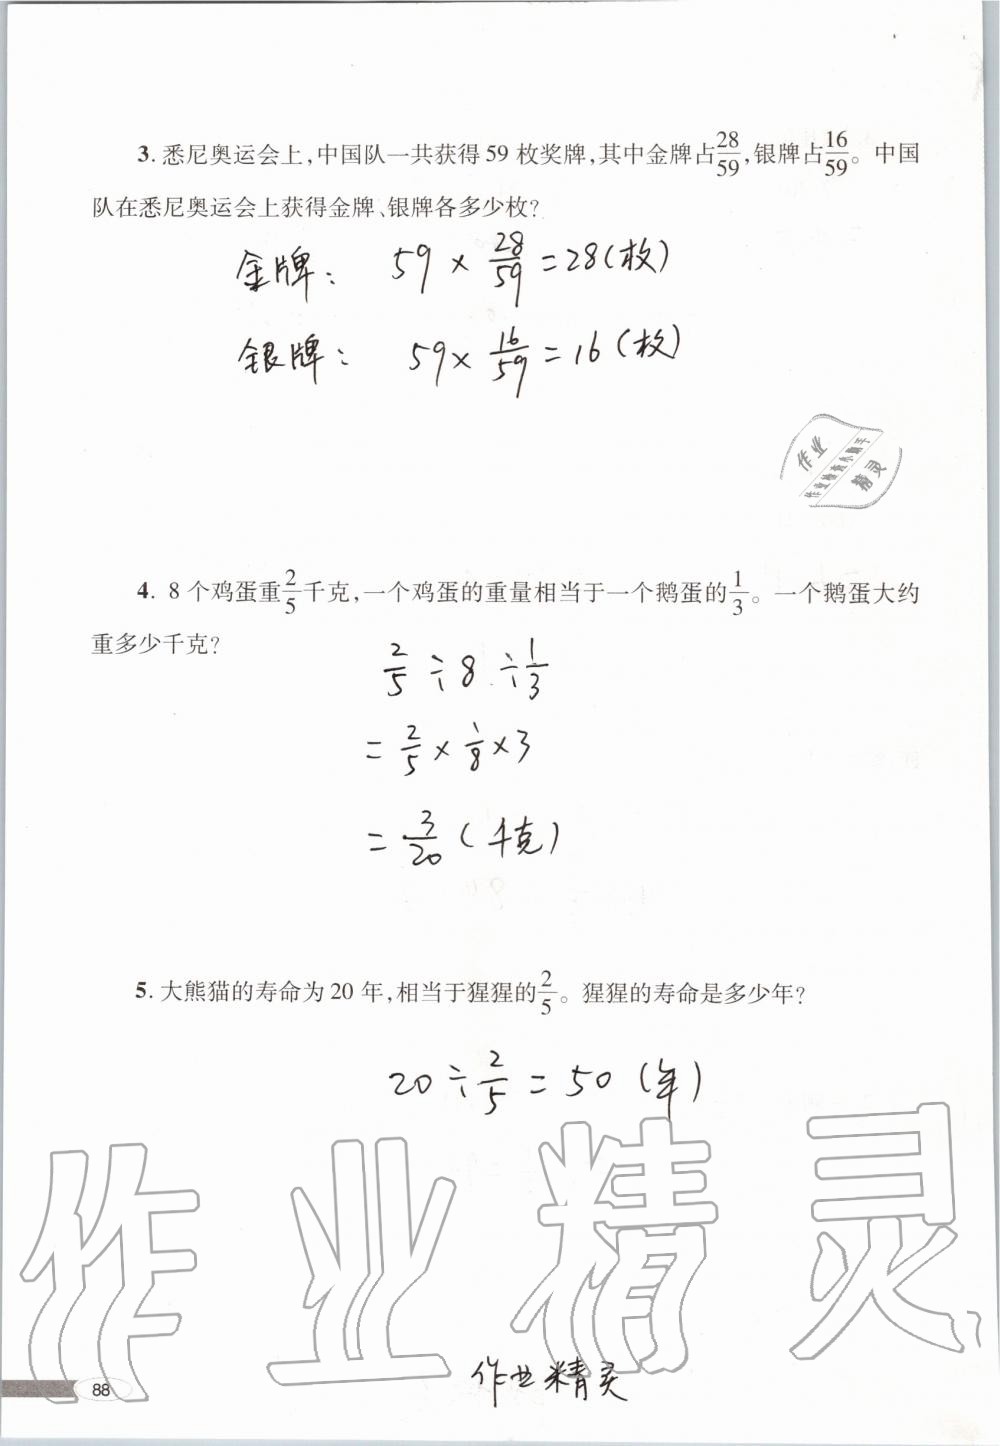 3. 悉尼奥运会上,中国队一共获得 59 枚奖牌,其中金牌占28/59,银牌占16/59。中国
队在悉尼奥运会上获得金牌、银牌各多少枚?
金牌: 59 × 28/59 = 28(枚)
银牌: 59 × 16/59 = 16(枚)
作业
作业检查小助手
精灵
4. 8 个鸡蛋重2/5千克,一个鸡蛋的重量相当于一个鹅蛋的1/3。一个鹅蛋大约
重多少千克?
2/5 ÷ 8 ÷ 1/3
= 2/5 × 1/8 × 3
= 3/20 (千克)
5. 大熊猫的寿命为 20 年,相当于猩猩的2/5。猩猩的寿命是多少年?
20 ÷ 2/5 = 50 (年)
作业精灵
作业精灵
88